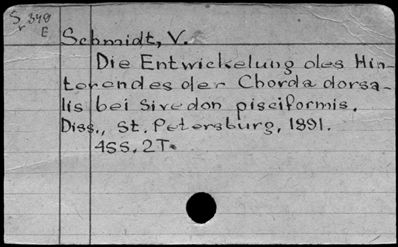 S 348
r E
Schmidt, V.
Die Entwickelung des Hin-
terendes der Chorda dorsa-
lis bei Siredon pisciformis.
Diss., St. Petersburg, 1891.
45S. 2T.